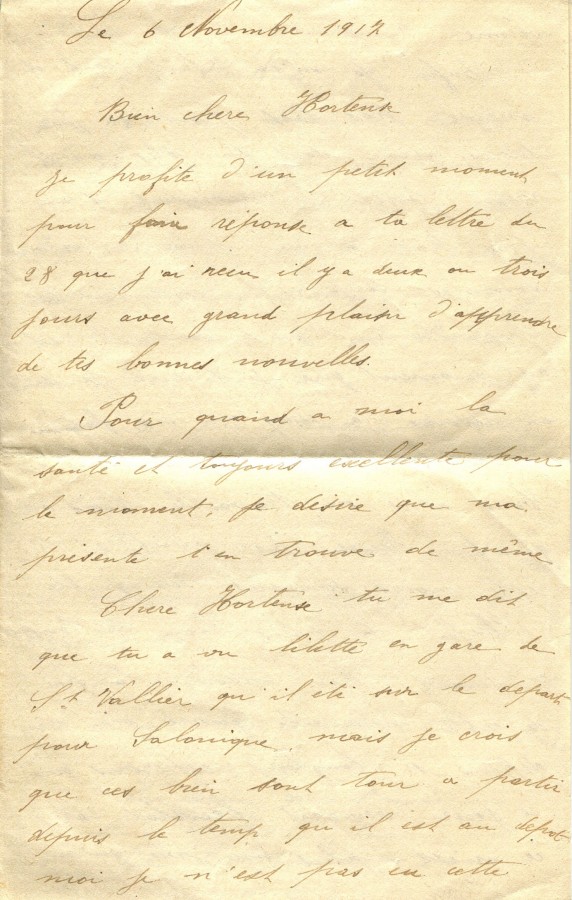 Le 6 Novembre 1917
Bien chere Hortense
Je profite d'un petit moment
pour faire réponse a ta lettre du
28 que j'ai recu il y a deux ou trois
jours avec grand plaisir d'apprendre
de tes bonnes nouvelles.
Pour quand a moi la
santé et toujours excellente pour
le moment, je désire que ma
présente t'en trouve de même
Chere Hortense tu me dit
que tu a vu en gare de
St Vallier qu'il iti sur le depart
pour Salonique, mais je crois
que ces bien sont tour a partir
depuis le temp qu il est au depot
moi je n'est pas eu cette